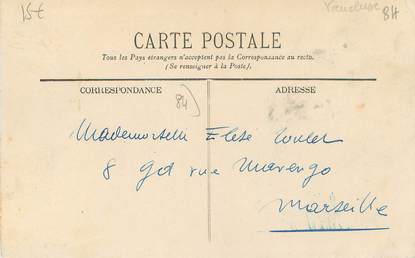 15€
Vaucluse
84
CARTE POSTALE
Tous les Pays étrangers n'acceptent pas la Correspondance au recto.
(Se renseigner à la Poste).
CORRESPONDANCE
ADRESSE
84)
Mademoiselle
8 rue Marengo
Marseille